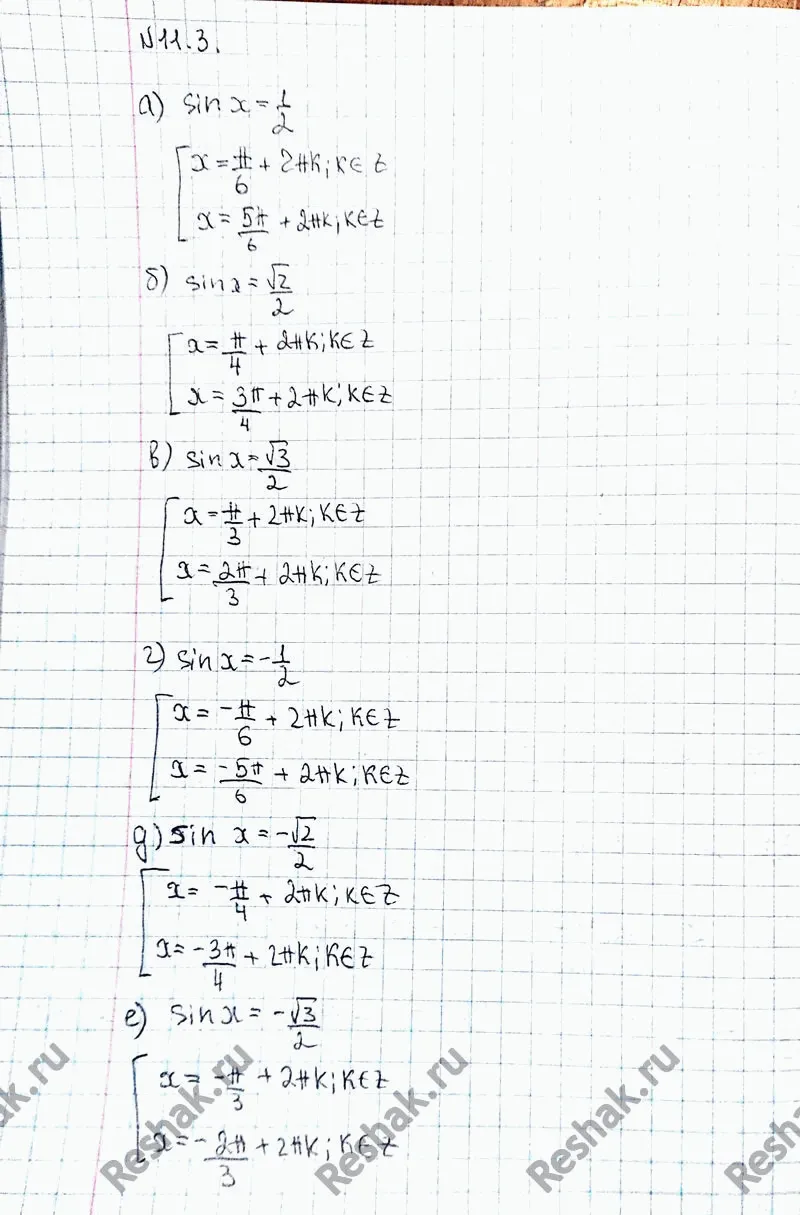 №11.3.
а) sin x = 1/2
x = π/6 + 2πk; k∈Z
x = 5π/6 + 2πk; k∈Z
б) sin x = √2/2
x = π/4 + 2πk; k∈Z
x = 3π/4 + 2πk; k∈Z
в) sin x = √3/2
x = π/3 + 2πk; k∈Z
x = 2π/3 + 2πk; k∈Z
г) sin x = -1/2
x = -π/6 + 2πk; k∈Z
x = -5π/6 + 2πk; k∈Z
д) sin x = -√2/2
x = -π/4 + 2πk; k∈Z
x = -3π/4 + 2πk; k∈Z
е) sin x = -√3/2
x = -π/3 + 2πk; k∈Z
x = -2π/3 + 2πk; k∈Z
ak.ru
Reshak.ru
Reshak.ru
Reshak.ru
Resha